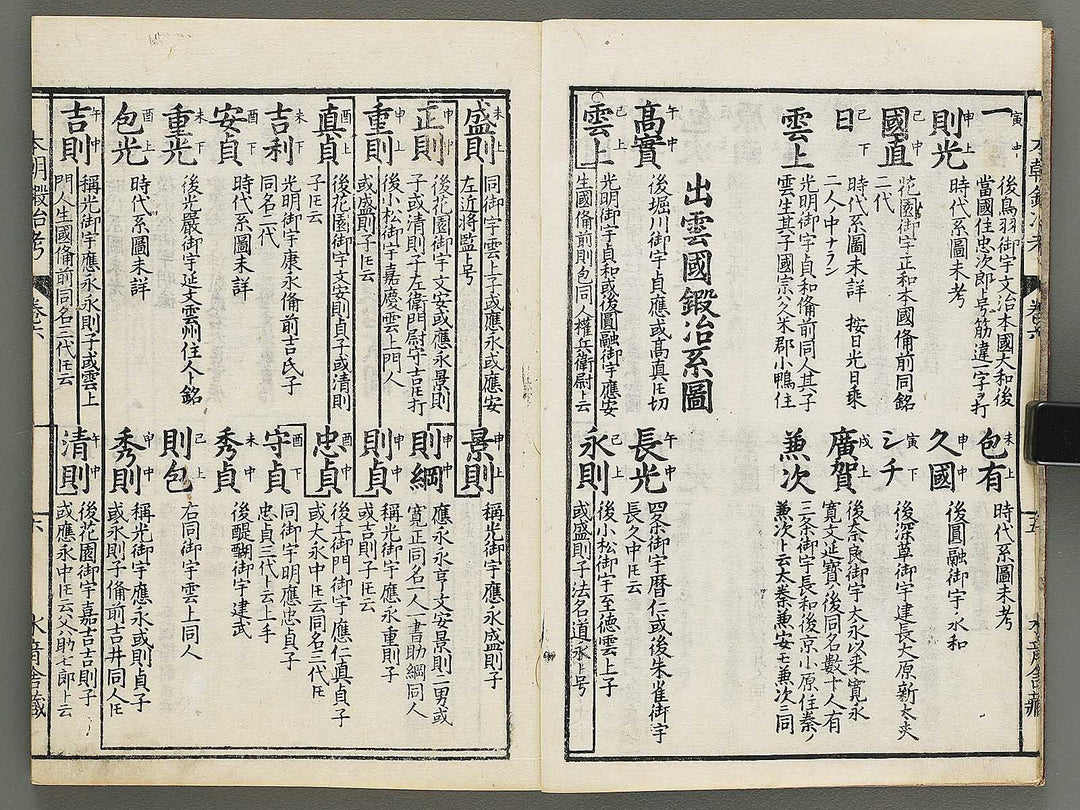 一 寅中 後鳥羽御宇文治本國大和後
當國住忠次郎ト号筋違一字ヲ打
則光 申上 時代系圖未考
國直 己中 花園御宇正和本國備前同銘
二代
日 己下 時代系圖未詳 按日光日乗
二人中ナラン
雲上 光明御宇貞和備前同人其子
雲生其子國宗
包有 未上 時代系圖未考
久國 申中 後圓融御宇永和
シチ 寅下 後深草御宇建長大原新太夫
廣賀 戌上 後奈良御宇大永以来寛永
寛文延寶ノ後同名數十人有
兼次 三条御宇長和後京小原住秦ノ
兼次ト云太秦兼安モ兼次三同
出雲國鍛冶系圖
高實 午中 後堀川御宇貞應或高真トモ切
雲上 己上 光明御宇貞和或後圓融御宇應安
生國備前則包同人權兵衛尉ト云
長光 午中 四条御宇暦仁或後朱雀御宇
長久中トモ云
永則 己上 後小松御宇至德雲上子
或盛則子法名道永ト号
本朝鍛冶考 卷六 五
盛則 未上 同御宇雲上子或應永或應安
左近將監ト号
正則 申中 後花園御宇文安或應永景則
子或清則子左衛門尉守吉トモ打
重則 申中 後小松御宇嘉慶雲上門人
或盛則子トモ云
真貞 酉上 後花園御宇文安則貞子或清則
子トモ云
吉利 未下 光明御宇康永備前吉氏子
同名二代
安貞 酉下 時代系圖未詳
重光 未下 後光嚴御宇延文雲州住人ト銘
包光 酉上 時代系圖未詳
吉則 午中 稱光御宇應永永則子或雲上
門人生國備前同名三代トモ云
景則 申上 稱光御宇應永盛則子
則綱 申中 應永永享文安景則二男或
寛正同名二人一書助綱同人
則貞 申中 稱光御宇應永重則子
或吉則子トモ云
忠貞 酉中 後土御門御宇應仁真貞子
或大永中トモ云同名三代トモ
守貞 酉下 同御宇明應忠貞子
忠貞三代ト云上手
秀貞 未中 後醍醐御宇建武
則包 己上 右同御宇雲上同人
秀則 申中 稱光御宇應永或則貞子
或永則子備前吉井同人トモ
清則 午中 後花園御宇嘉吉吉則子
或應永中トモ云父八助七郎ト云
本朝鍛冶考 卷六 六